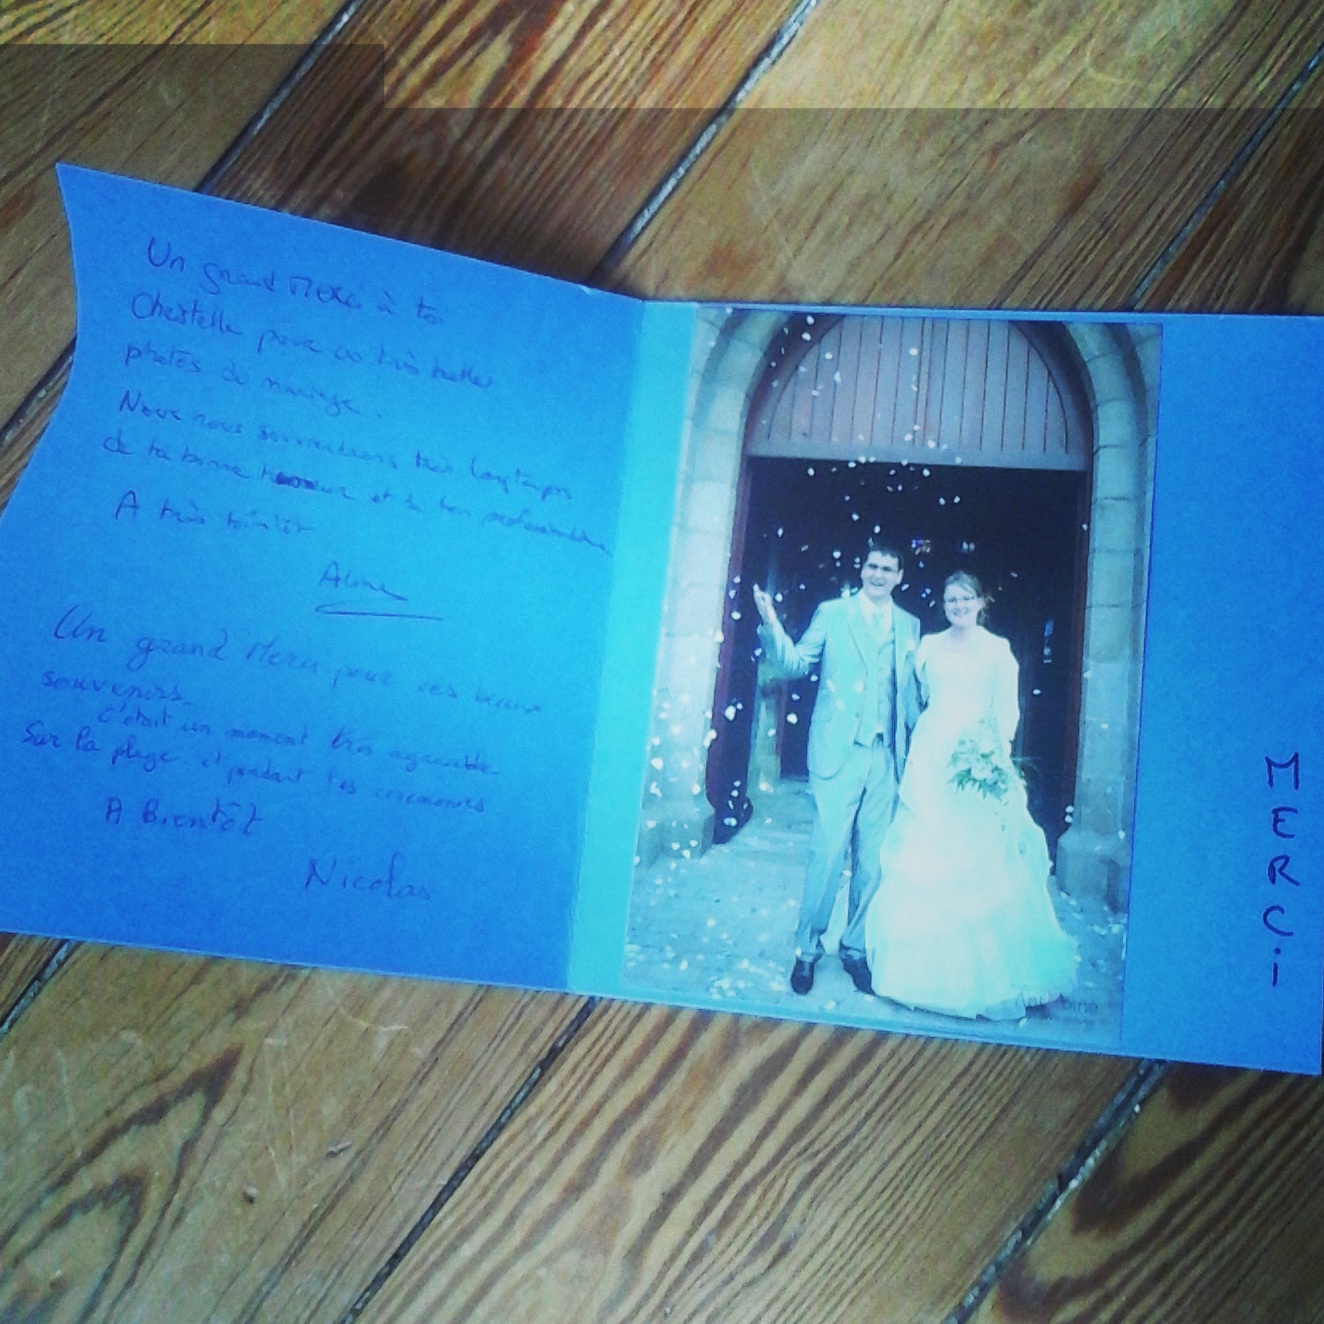 Un grand Merci à toi
Christelle pour ces très belles
photos de mariage.
Nous nous souviendrons très longtemps
de ta bonne humeur et de ton professionnalisme
A très bientôt
Aline
Un grand Merci pour ces beaux
souvenirs.
C'était un moment très agréable
Sur la plage et pendant les cérémonies
A Bientôt
Nicolas
MERCi